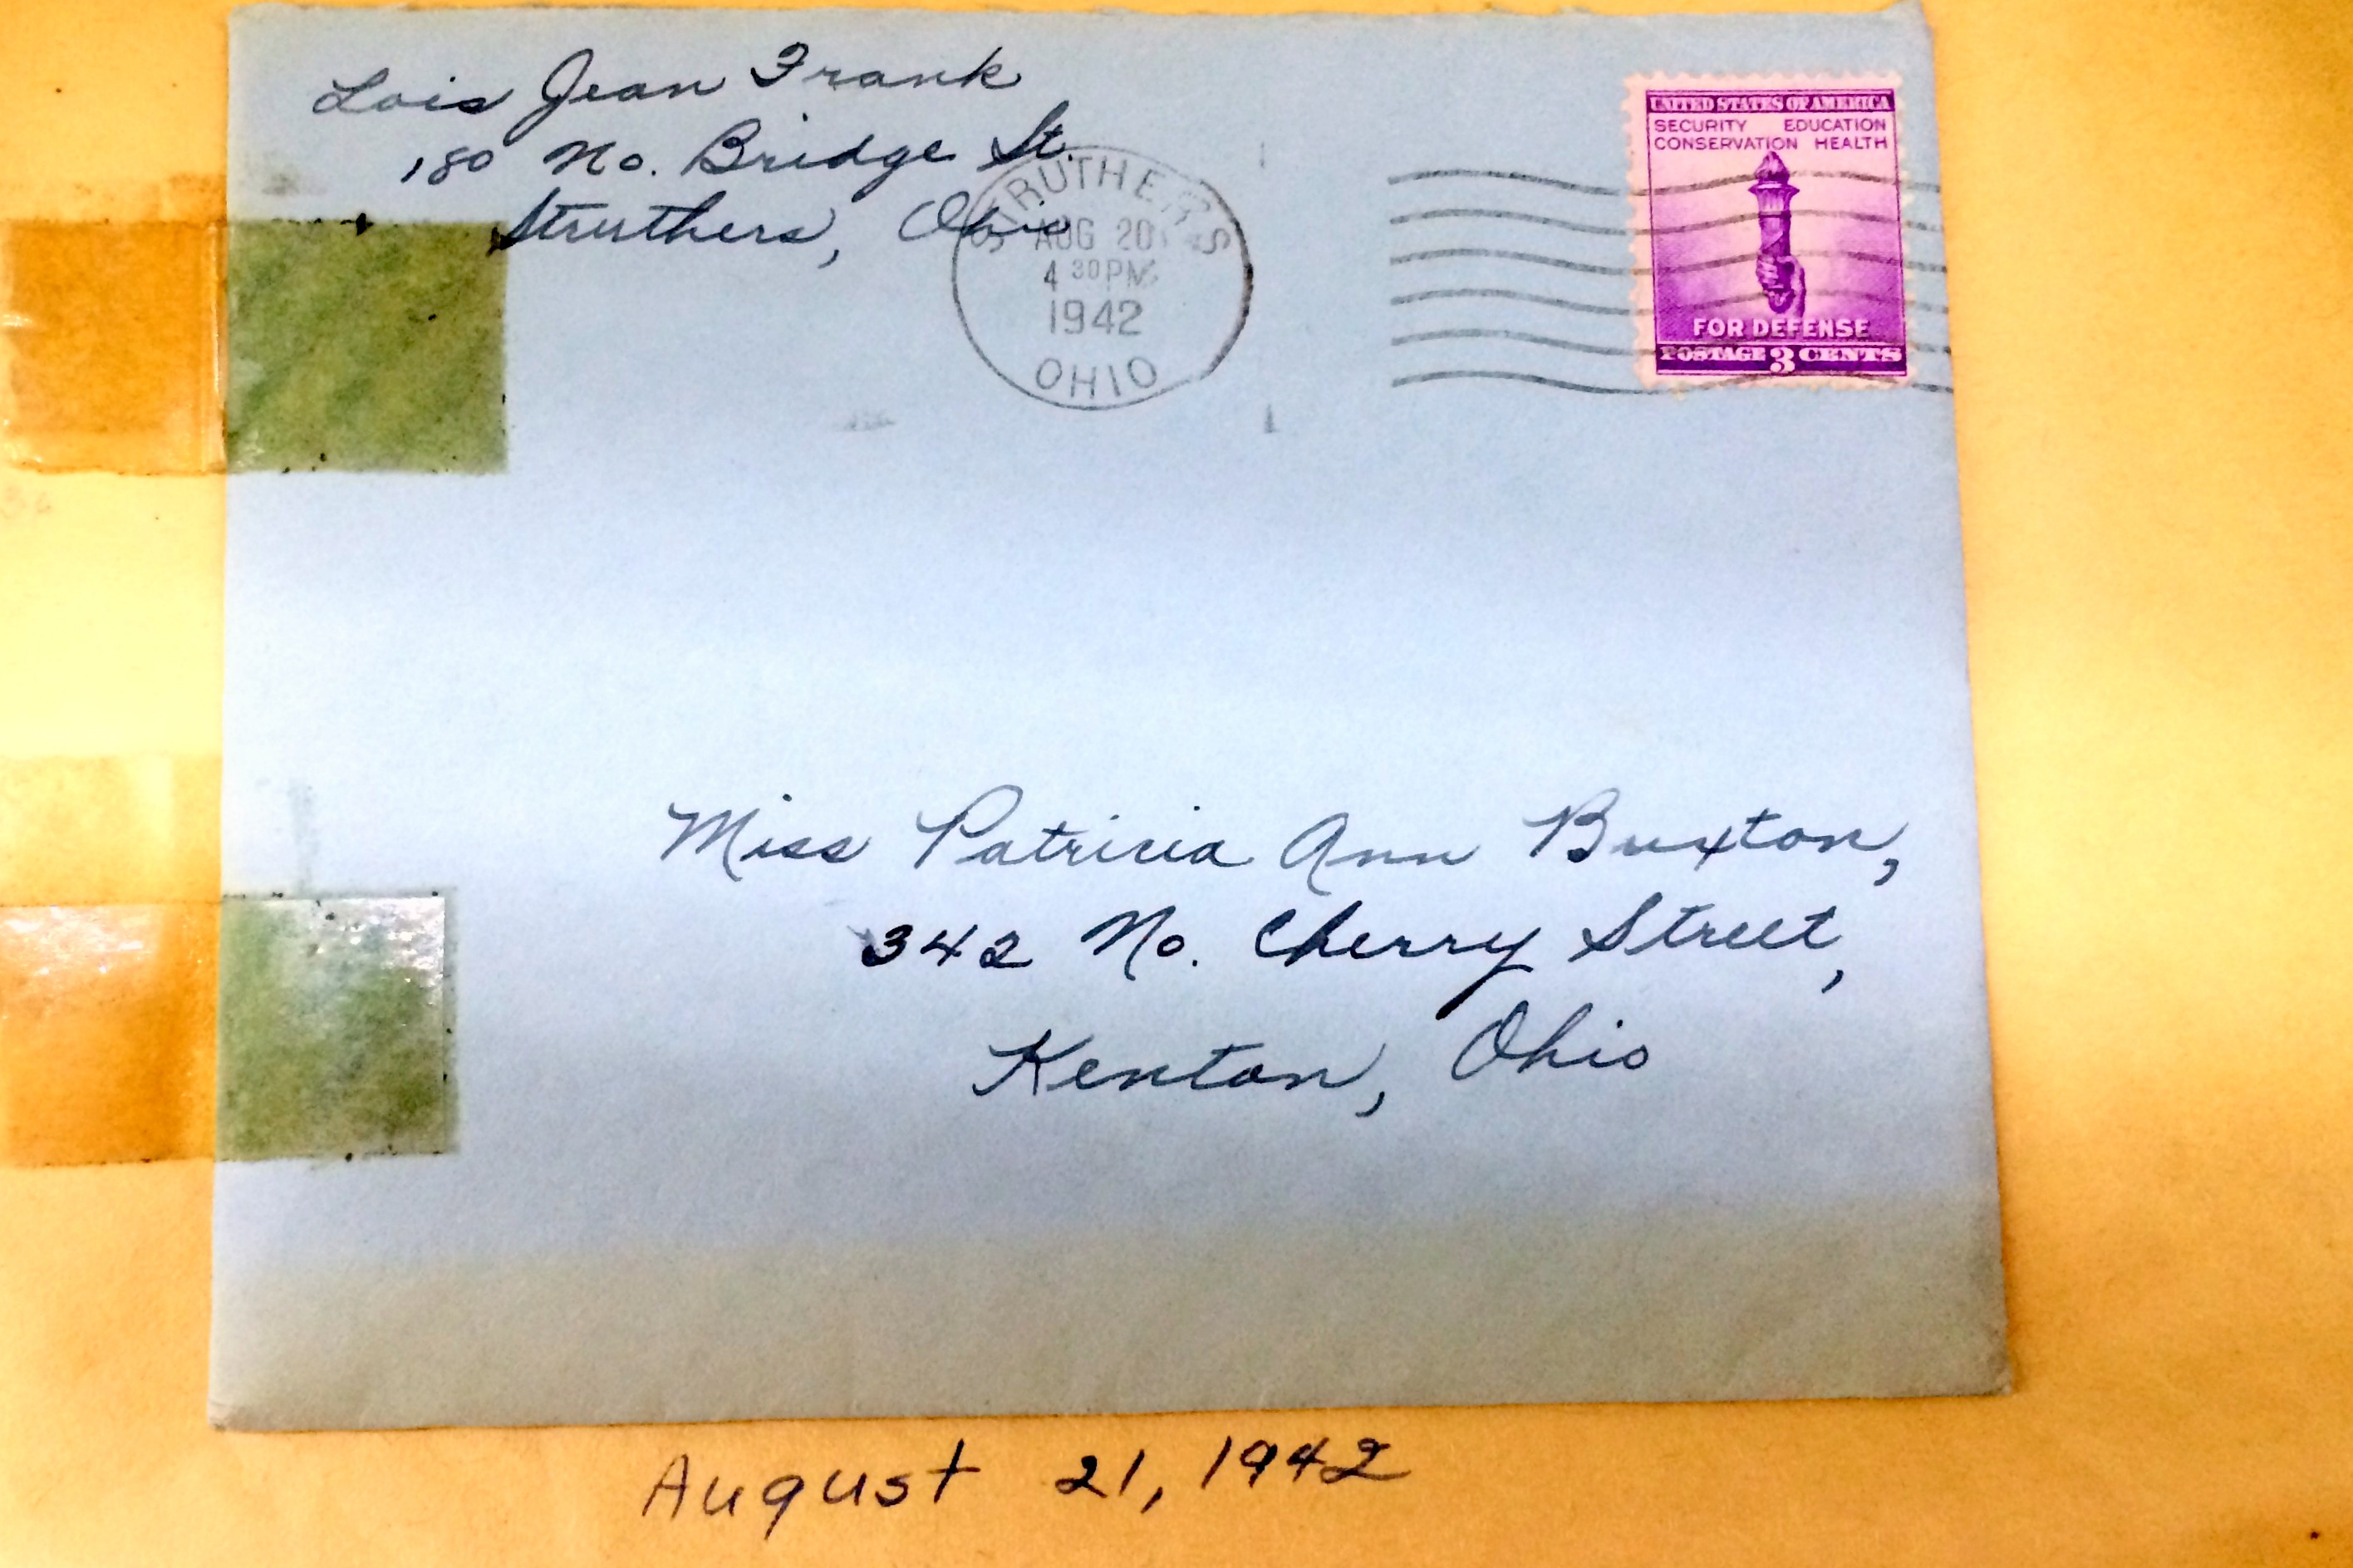 Lois Jean Frank
180 No. Bridge St.
Struthers, Ohio
STRUTHERS
AUG 20
4 30 PM
1942
OHIO
UNITED STATES OF AMERICA
SECURITY EDUCATION
CONSERVATION HEALTH
FOR DEFENSE
POSTAGE 3 CENTS
Miss Patricia Ann Buxton,
342 No. Cherry Street,
Kenton, Ohio
August 21, 1942